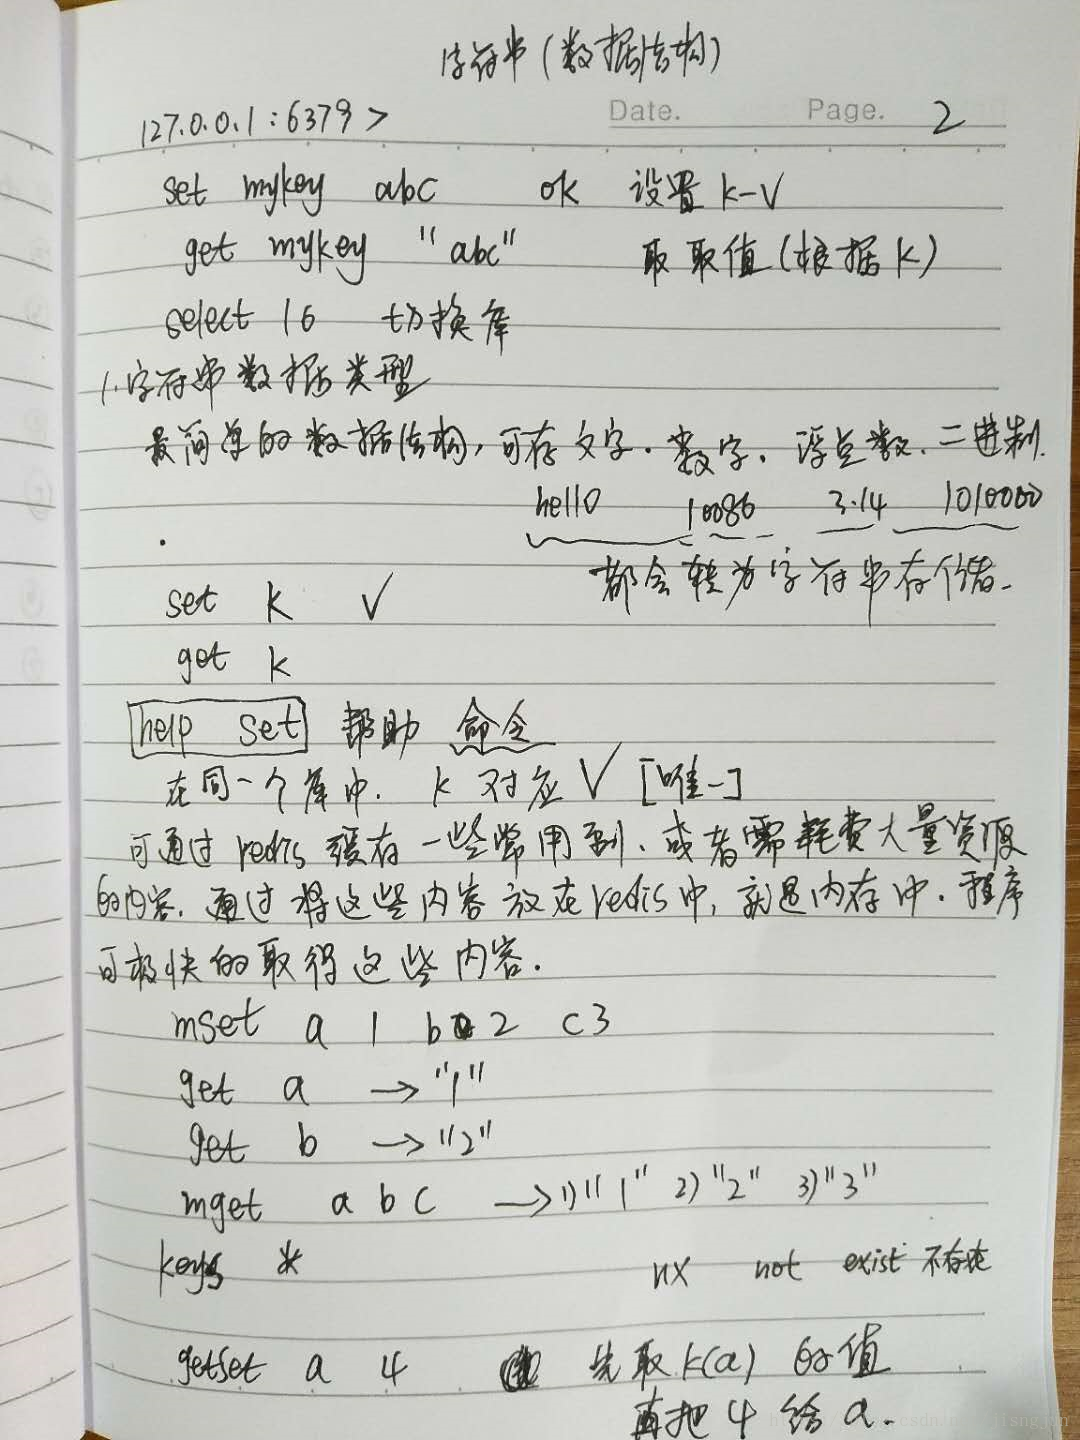 字符串(数据结构)
Date. Page. 2
127.0.0.1:6379>
set mykey abc ok 设置 k-V
get mykey "abc" 取 取值(根据k)
select 16 切换库
1.字符串数据类型
最简单的数据结构,可存文字.数字.浮点数.二进制.
hello 10086 3.14 1010000
都会转为字符串存储.
set k V
get k
help set 帮助 命令
在同一个库中. k 对应 V [唯一]
可通过redis缓存一些常用到、或者需耗费大量资源
的内容.通过将这些内容放在redis中,就是内存中.程序
可极快的取得这些内容.
mset a 1 b 2 c3
get a → "1"
get b → "2"
mget a b c → 1)"1" 2)"2" 3)"3"
keys *
nx not exist 不存在
getset a 4 先取k(a)的值
再把4给a.